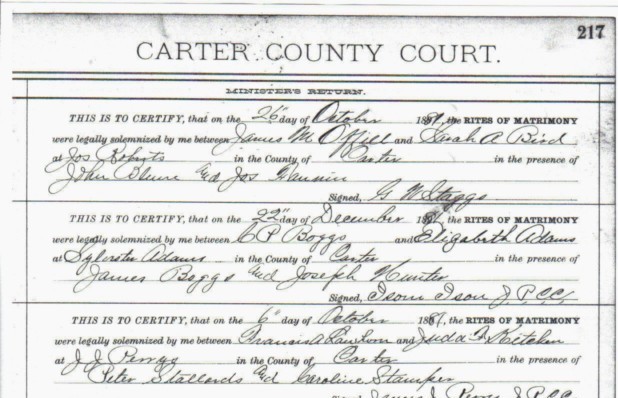 217
CARTER COUNTY COURT.
MINISTER'S RETURN.
THIS IS TO CERTIFY, that on the 26" day of October 1881, the RITES OF MATRIMONY
were legally solemnized by me between James M. Offill and Sarah A Bird
at Jos Roberts in the County of Carter in the presence of
John and Jos
Signed, G W Staggs
THIS IS TO CERTIFY, that on the 22" day of December 1881, the RITES OF MATRIMONY
were legally solemnized by me between C P Boggs and Elizabeth Adams
at Sylvester Adams in the County of Carter in the presence of
James Boggs and Joseph Hunter
Signed, Isom Ison J.P.C.C.
THIS IS TO CERTIFY, that on the 6" day of October 1881, the RITES OF MATRIMONY
were legally solemnized by me between Francis A and Juda F Kitchen
at J J Perry in the County of Carter in the presence of
Peter Stallards and Caroline Stamper